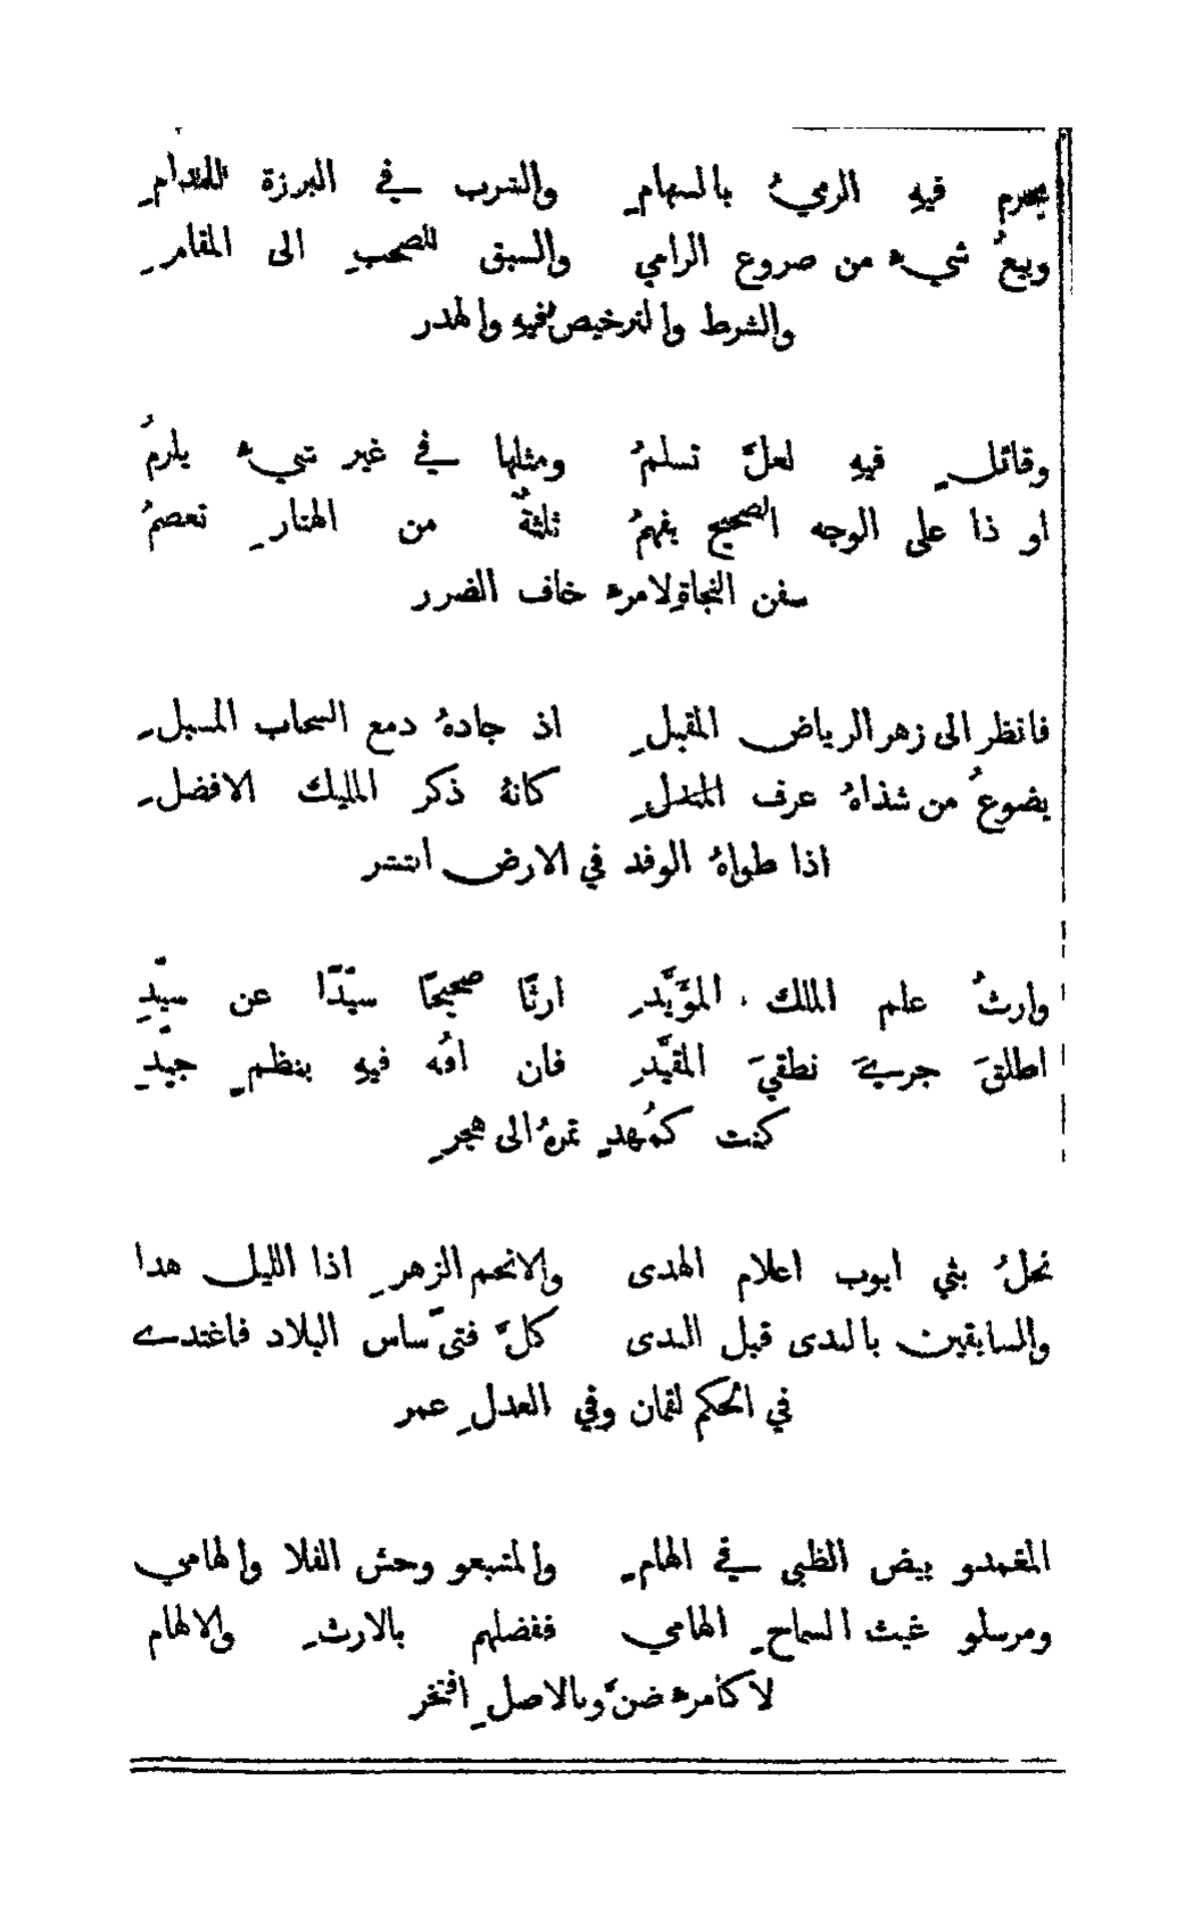 يحرم فيهِ الرميُ بالسهامِ والشرب في البرزة للقدامِ
وبيعُ شيء من صروع الرامي والسبق للصحبِ الى المقامِ
والشرط والترخيص فيهِ والهدر
وقائلٍ فيهِ لعلَّ تسلمُ ومثلها في غير شيء يلزمُ
او ذا على الوجه الصحيح يفهمُ ثلثةٌ من الهتارِ تعصمُ
سفن النجاةِ لامرء خاف الضرر
فانظر الى زهر الرياض المقبلِ اذ جادهُ دمع السحاب المسبلِ
يضوعُ من شذاهُ عرف المندلِ كانهُ ذكر المليك الافضلِ
اذا طواهُ الوفد في الارض انتشر
وارثُ علم الملك المؤيَّدِ ارثًا صحيحًا سيّدًا عن سيّدِ
اطلقَ جريَ نطقيَ المقيَّدِ فان افُه فيهِ بنظمٍ جيّدِ
كنت كمُهدٍ تمرهُ الى هجرِ
نجلُ بني ايوب اعلام الهدى والانجم الزهرِ اذا الليل هدا
والسابقين بالندى قبل الندى كلَّ فتىً ساس البلاد فاغتدى
في الحكم لقمان وفي العدلِ عمر
المغمدو بيض الظبى في الهامِ والمتبعو وحش الفلا والهامي
ومرسلو غيث السماحِ الهامي ففضلهم بالارثِ والالهام
لا كامرء ضنَّ وبالاصلِ افتخر